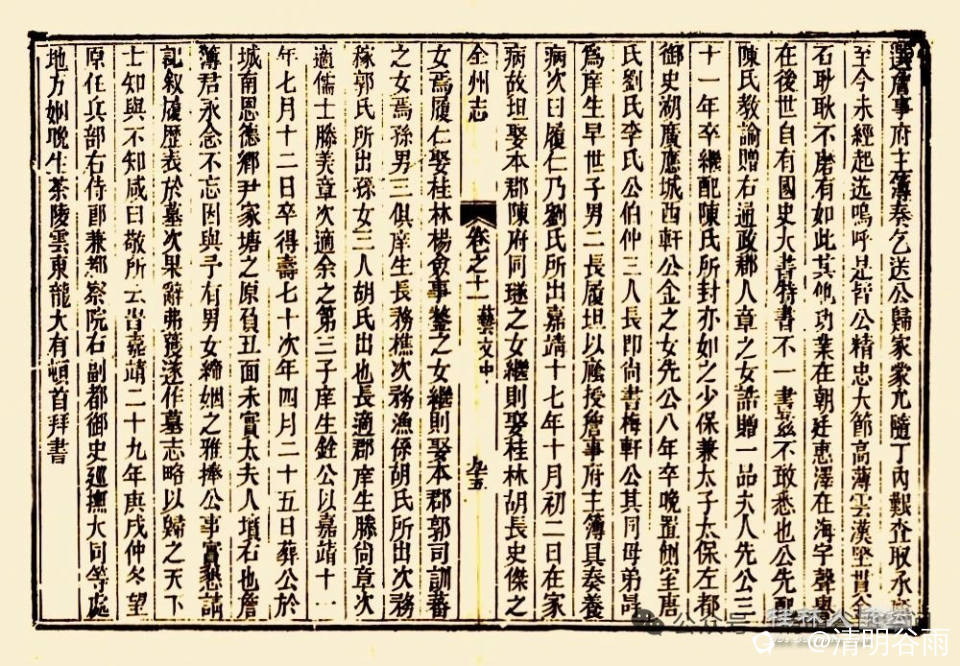 選詹事府主簿奏乞送公歸家蒙允隨丁內艱查取承
至今未經起选嗚呼是皆公精忠大節高薄雲漢堅貫金
石耿耿不磨有如此其他功業在朝廷惠澤在海宇聲
在後世自有國史大書特書不一書茲不敢悉也公先配
陳氏教諭贈右通政郡人章之女誥贈一品夫人先公三
十一年卒繼配陳氏所封亦如之少保兼太子太保左都
御史湖廣應城西軒公金之女先公八年卒晚置側室唐
氏劉氏李氏公伯仲三人長即尚書梅軒公其同母弟
爲庠生早世子男二長履坦以廕授詹事府主簿具奏養
病次曰履仁乃劉氏所出嘉靖十七年十月初二日在家
病故坦娶本郡陳府同璲之女繼則娶桂林胡長史傑之
全州志 卷之十一 藝文中 九十五
女焉履仁娶桂林楊僉事鏊之女繼則娶本郡郭司訓蕃
之女焉孫男三俱庠生長務樵次務漁係胡氏所出次務
稼郭氏所出孫女三人胡氏出也長適郡庠生滕尚章次
適儒士滕美章次適余之第三子庠生銓公以嘉靖十一
年七月十二日卒得壽七十次年四月二十五日葬公於
城南恩德鄉尹家塘之原負丑面未實太夫人墳右也詹
簿君永念不忘因與予有男女締姻之雅捧公事實懇請
記叙履歷表於墓次果辭弗獲遂作墓志略以歸之天下
士知與不知咸曰敬所云旹嘉靖二十九年庚戌仲冬望
原任兵部右侍郎兼都察院右副都御史巡撫大同等處
地方姻晚生茶陵雲東龍大有頓首拜書
公众号
@清明谷雨